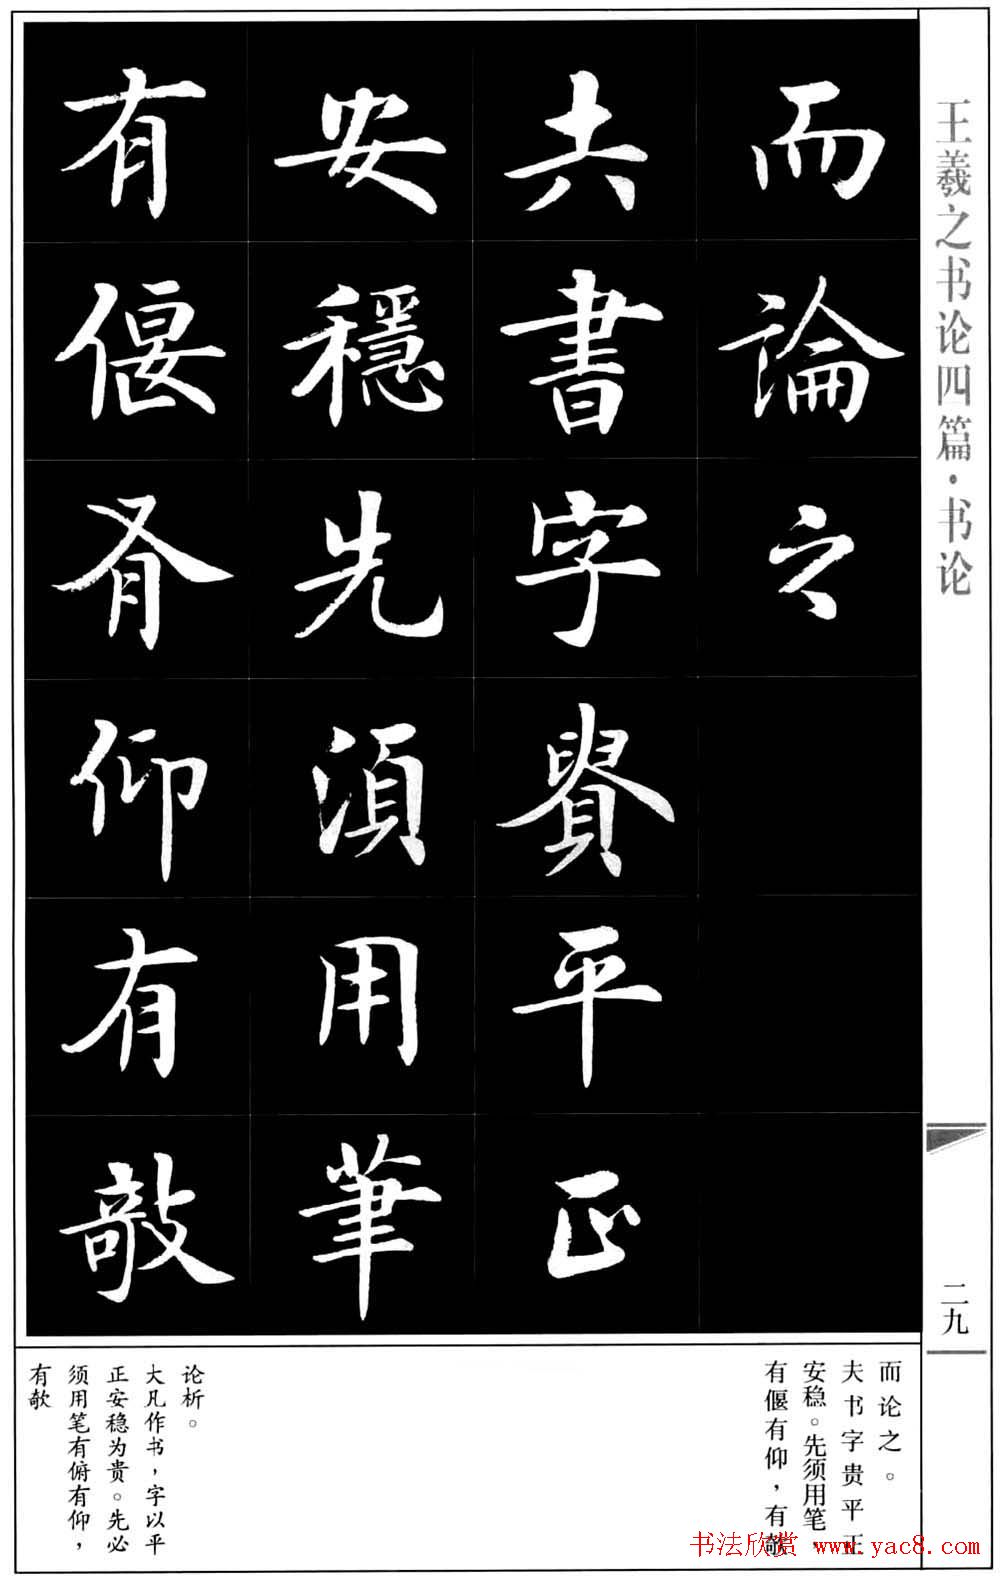 王羲之书论四篇·书论
二九
而論之
夫書字貴平正
安穩先須用筆
有偃有仰有敧
而论之。
夫书字贵平正
安稳。先须用笔，
有偃有仰，有敧
论析。
大凡作书，字以平
正安稳为贵。先必
须用笔有俯有仰，
有欹
书法欣赏 www.yac8.com